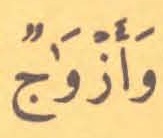 وَأَزْوَاجٌ